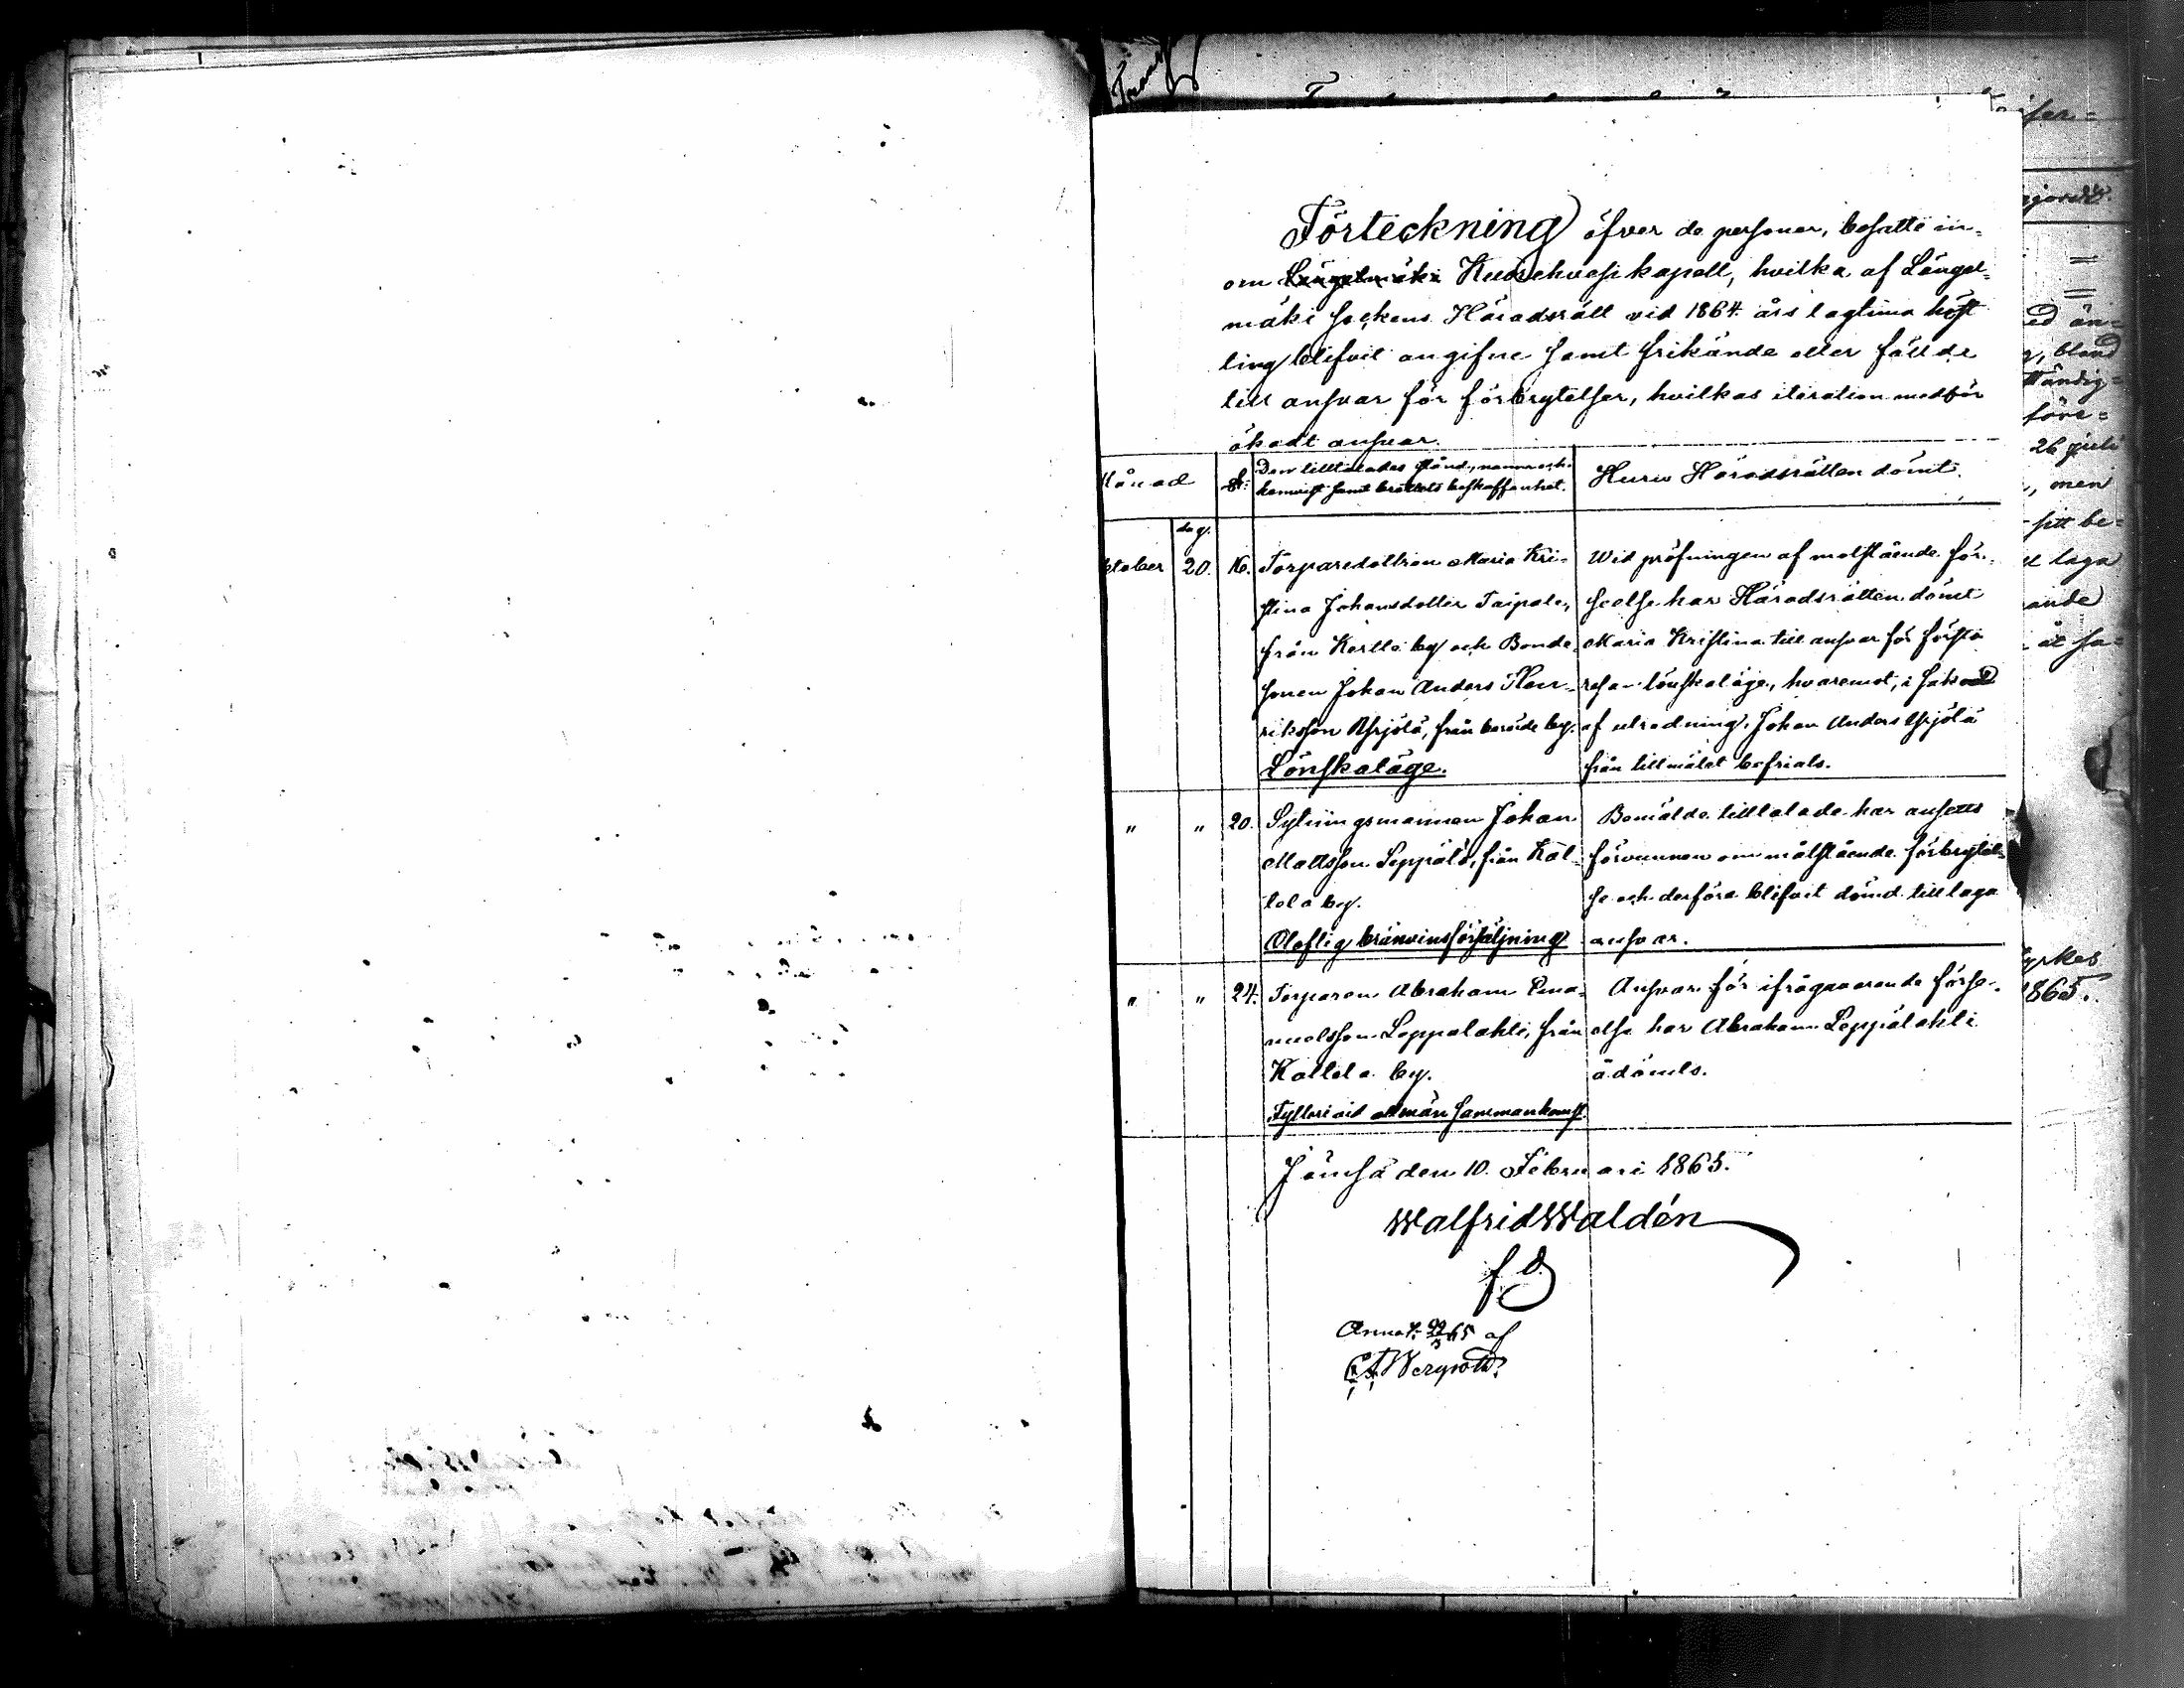 Förteckning öfver de personer, besatte in-
om Längelmäki Kuorehvesi kapell, hvilka af Längel-
mäki sockens Häradsrätt vid 1864 års lagtima höst
ting blifvit angifne samt frikände eller fällde
till ansvar för förbrytelser, hvilkas iteration medför
ökadt ansvar.
Månad
§.
Den tilltalades stånd, namn och
hemvist samt brottets beskaffenhet.
Huru Häradsrätten dömt.
dag.
ktober 20. 16. Torparedottren Maria Kri-
stina Johansdotter Taipale,
från Kertte by och Bonde-
sonen Johan Anders Hen-
riksson Yrjölä, från berörde by.
Lönskaläge.
Wid pröfningen af motstående för-
seelse har Häradsrätten dömt
Maria Kristina till ansvar för första
resan lönskaläge, hvaremot, i saknad
af utredning, Johan Anders Yrjölä
från tillmälet befriats.
" " 20. Sytningsmannen Johan
Mattsson Seppälä, från Kal-
lela by.
Oloflig bränvinsförsäljning
Bemälde tilltalade har ansetts
förvunnen om motstående förbrytel-
se och derföre blifvit dömd till laga
ansvar.
" " 24. Torparen Abraham Ema-
nuelsson Leppälahti, från
Kallela by.
Fylleri vid allmän sammankomst.
Ansvar för ifrågavarande förse-
else har Abraham Leppälahti
ådömts.
Jämsä den 10. Februari 1865.
Walfrid Waldén
Annot. 22/3 65 af
ifer-
gjordt.
ed än-
, bland
ständig-
före-
26 juli
, men
sitt be-
laga
ande
åt sa-
yrkes
1865.